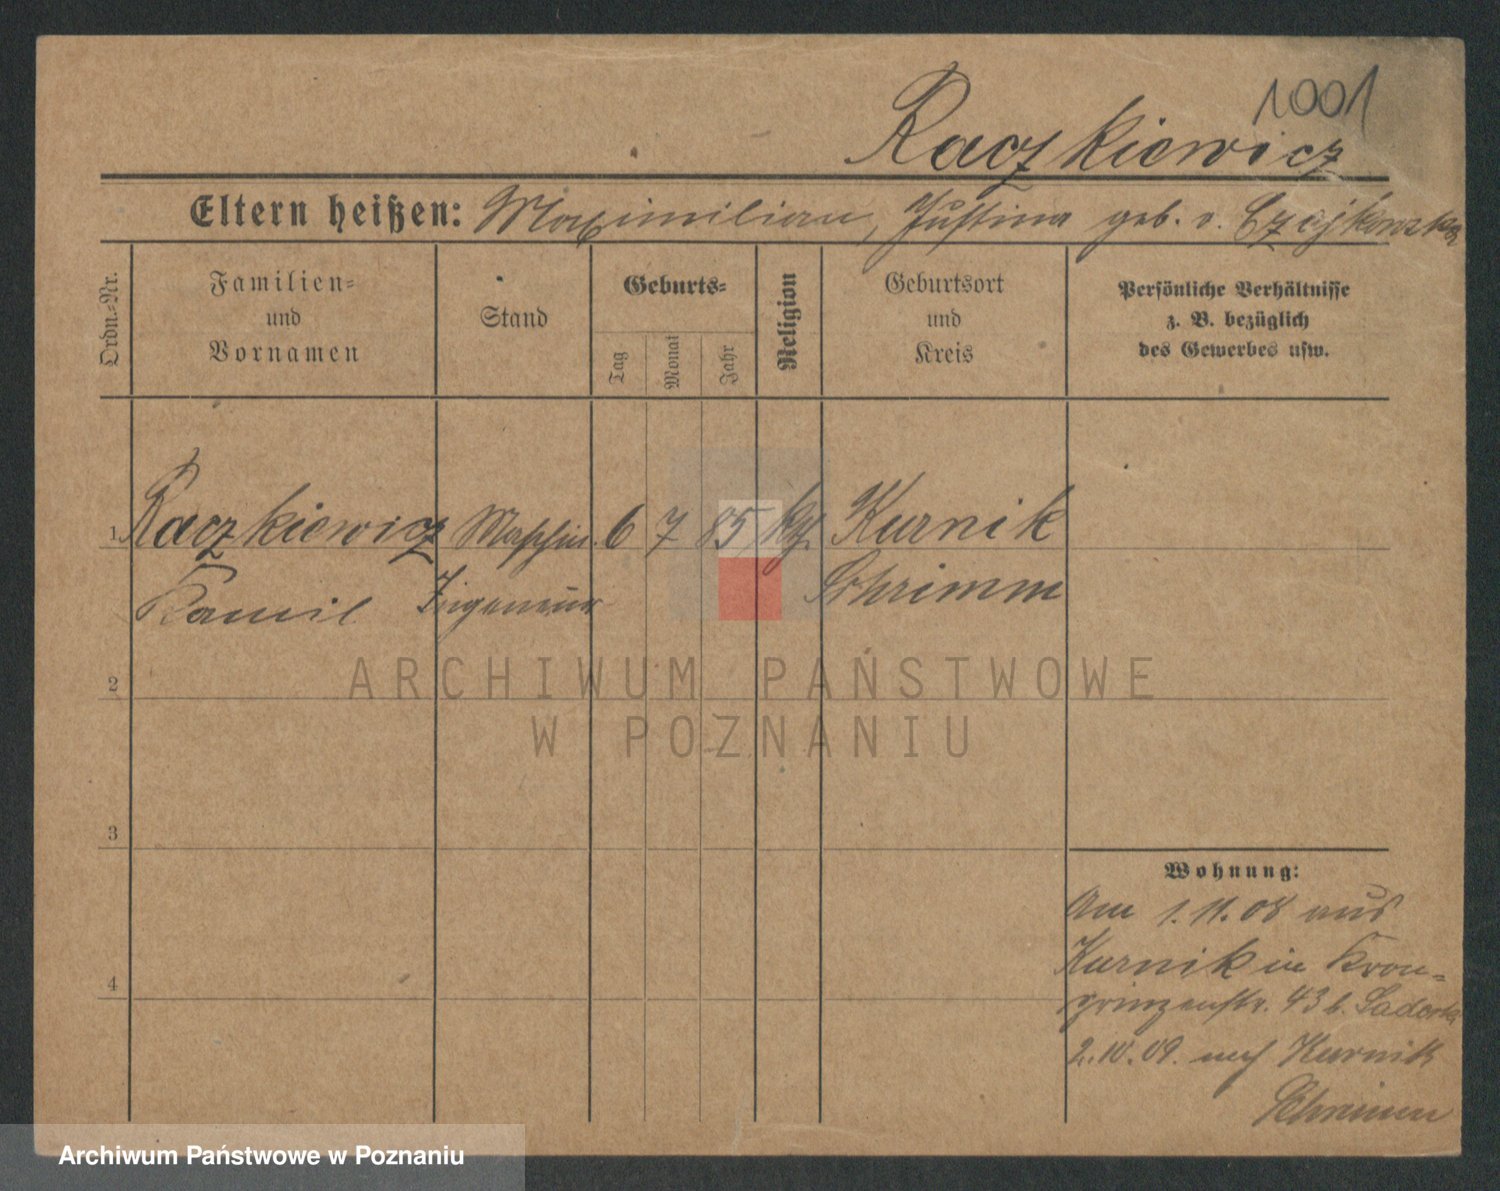 1001
Raczkiewicz
Eltern heißen: Maximilian, Justina geb. v. Czajkowska
Ordn.-Nr.
Familien-
und
Vornamen
Stand
Geburts-
Tag
Monat
Jahr
Religion
Geburtsort
und
Kreis
Persönliche Verhältnisse
z. B. bezüglich
des Gewerbes usw.
1 Raczkiewicz Maschin. 6 7 85 kth. Kurnik
Kamil Ingenieur Schrimm
ARCHIWUM PAŃSTWOWE
2
W POZNANIU
3
Wohnung:
Am 1.11.08 aus
Kurnik in Kron-
4
prinzenstr. 43 b.
2.10.09. nach Kurnik
Schrimm
Archiwum Państwowe w Poznaniu